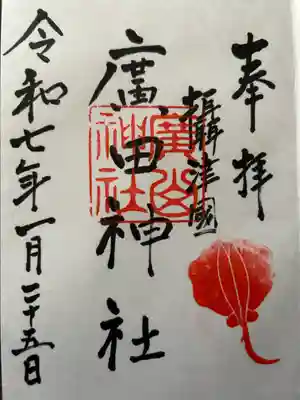 奉拝
摂津國
廣田神社
廣田神社
令和七年一月二十五日